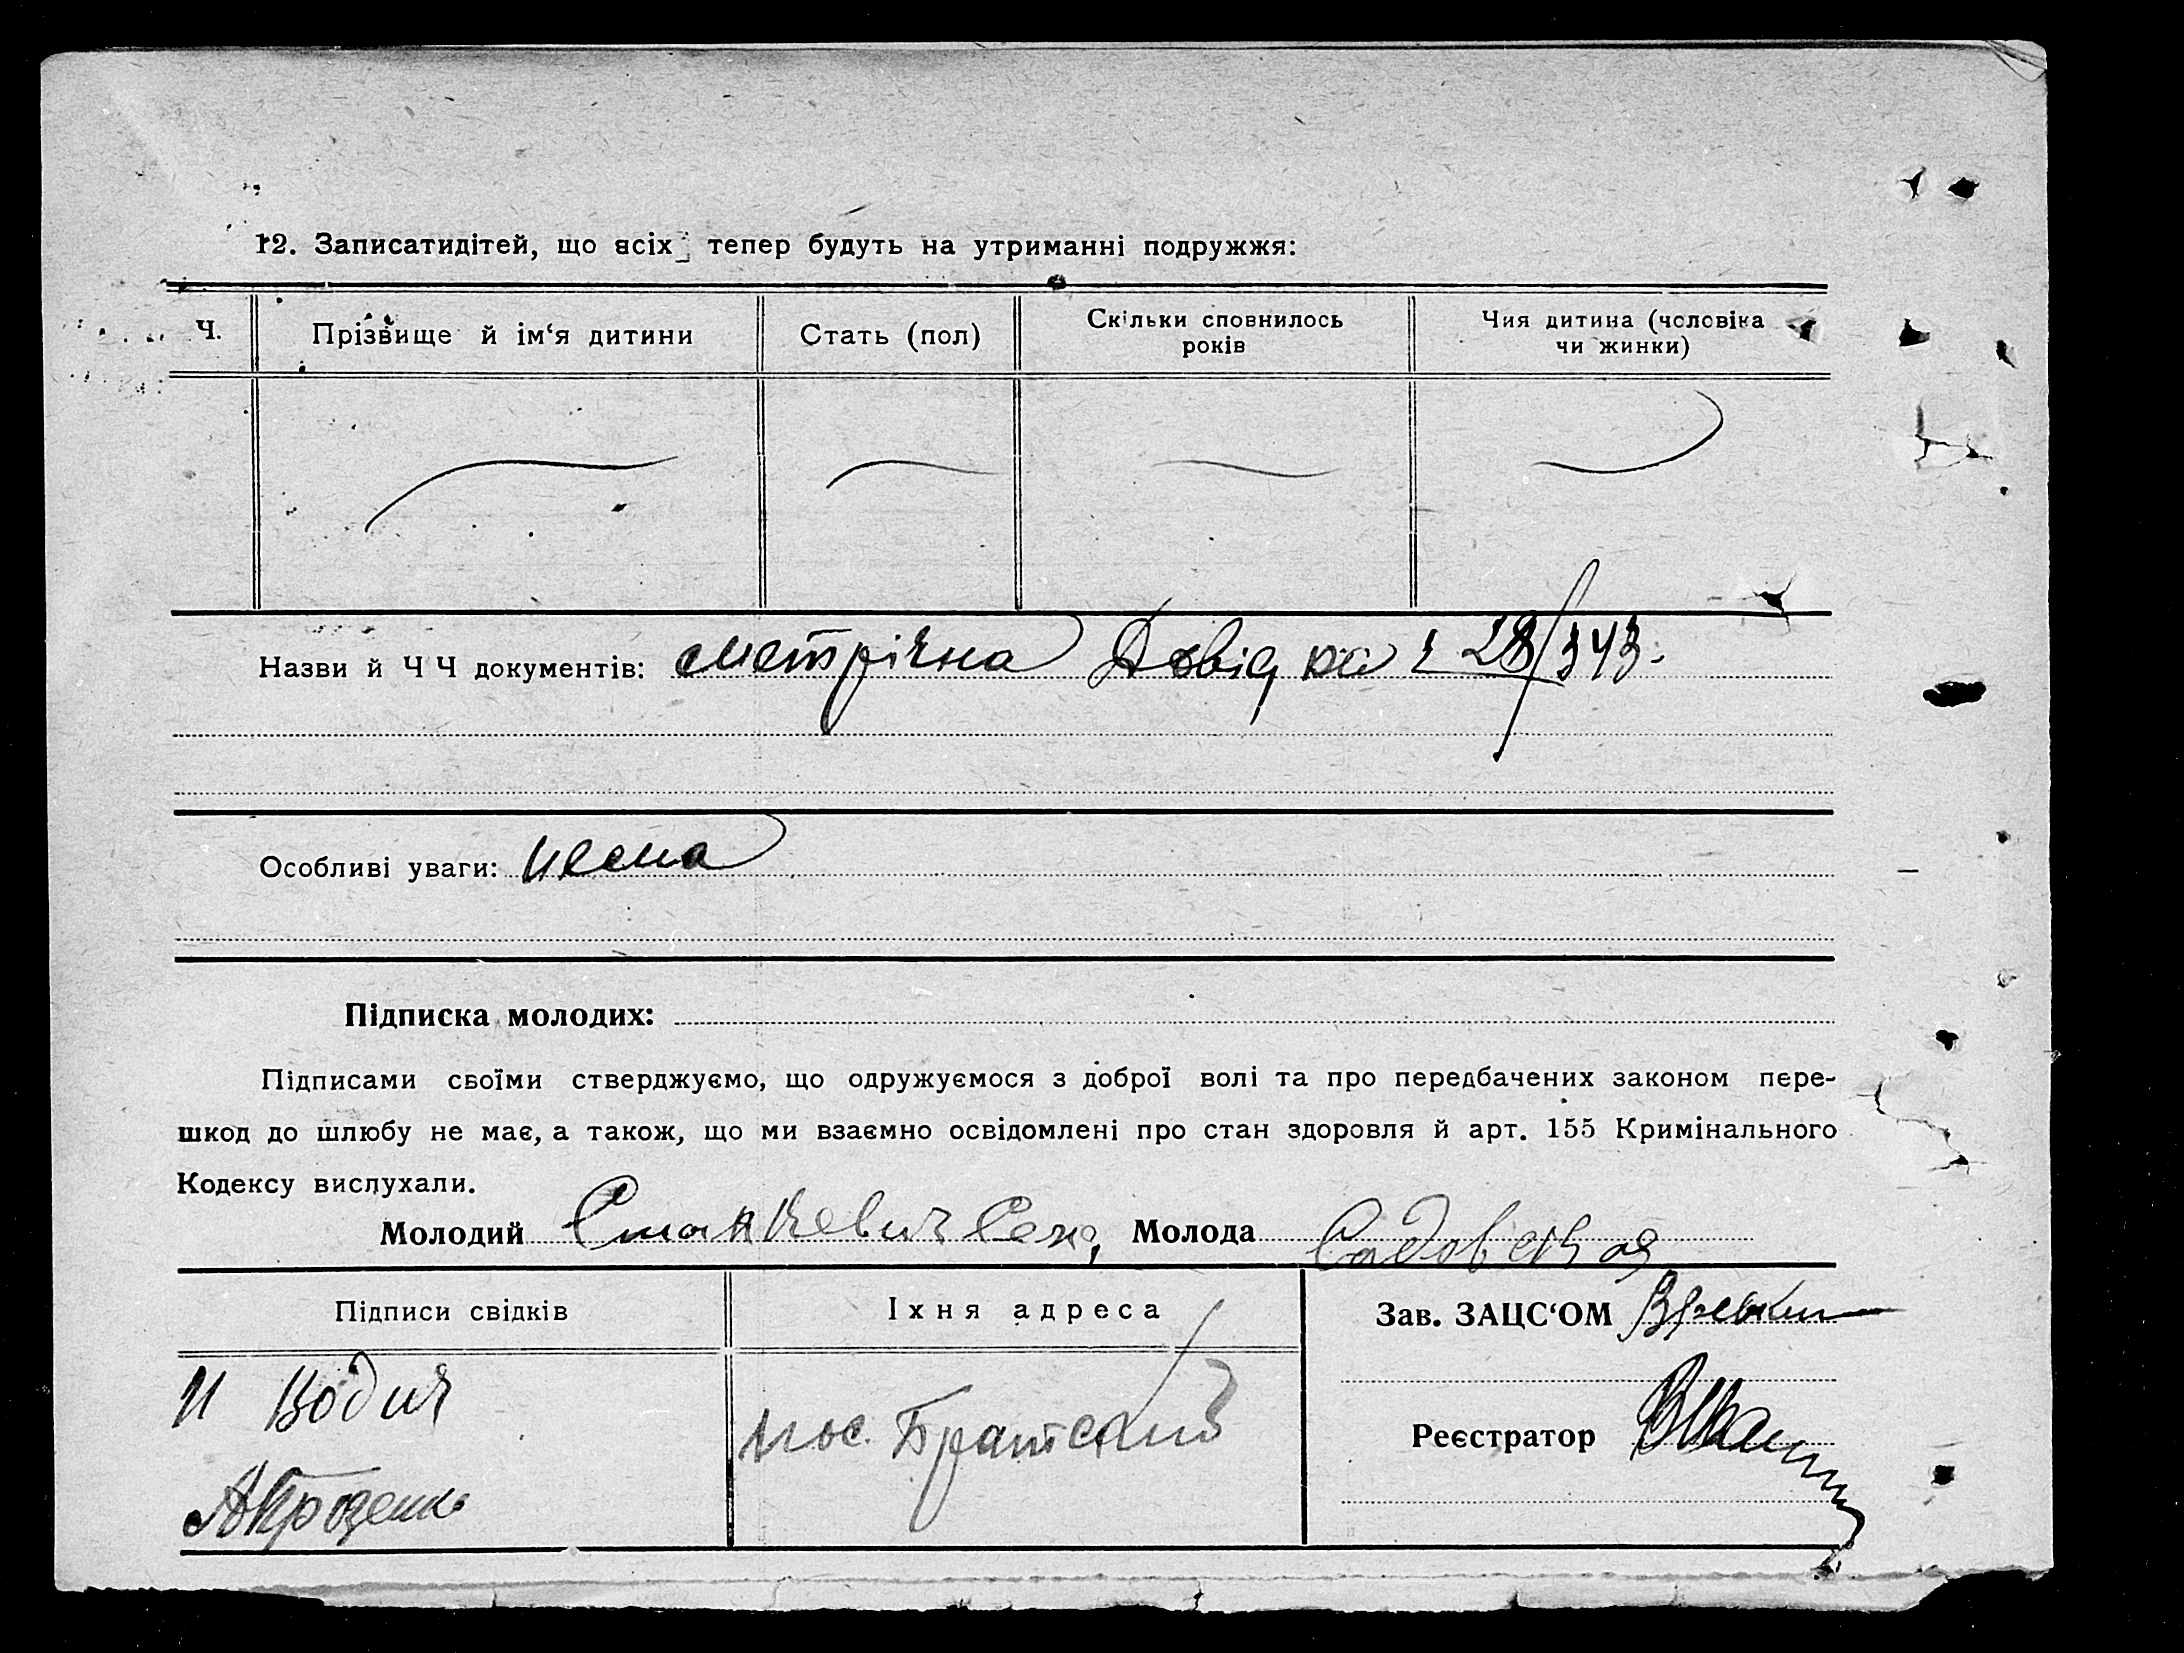 12. Записатидітей, що всіх тепер будуть на утриманні подружжя:
Ч.
Прізвище й ім‘я дитини
Стать (пол)
Скільки сповнилось
років
Чия дитина (чоловіка
чи жинки)
Назви й Ч Ч документів: метрічна Довідка 28/343.
Особливі уваги: нема
Підписка молодих:
Підписами своїми стверджуємо, що одружуємося з доброї волі та про передбачених законом пере-
шкод до шлюбу не має, а також, що ми взаємно освідомлені про стан здоровля й арт. 155 Кримінального
Кодексу вислухали.
Молодий Станкевич Молода Садовская
Підписи свідків
Іхня адреса
Зав. ЗАЦС‘ОМ
И Водич
пос. Братский
Реєстратор